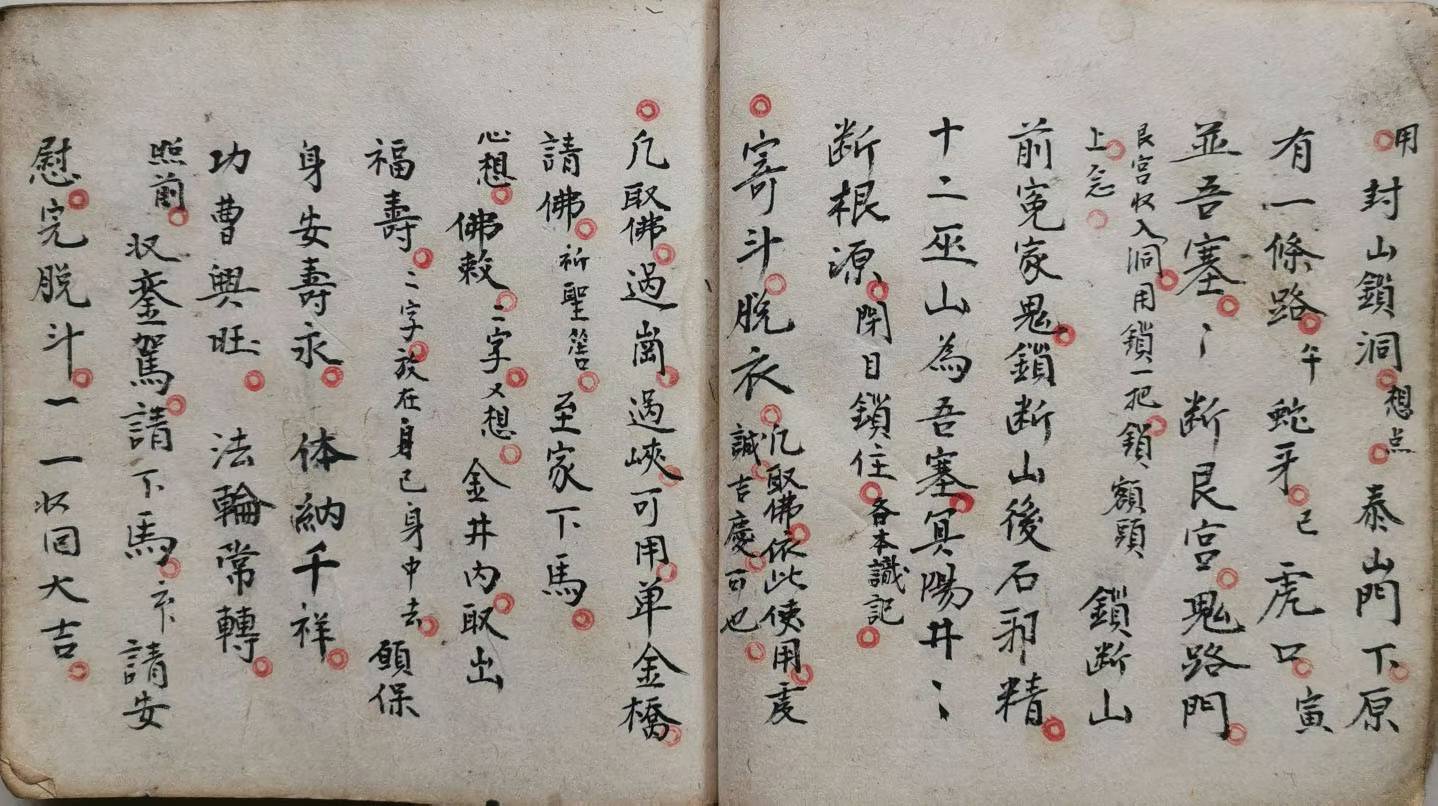 用封山鎖洞想点泰山門下原
有一條路午蛇牙己虎口寅
並吾塞〻断艮宮鬼路門
艮宮収入洞用鎖一把鎖額頭
上怎
鎖断山
前冤家鬼鎖断山後石邪精
十二巫山為吾塞冥陽井〻
断根源閉目鎖住各本識記
寄斗脱衣凢取佛依此使用虔
誠吉慶可也
凢取佛過崗過峽可用单金橋
請佛祈聖筶至家下馬
心想佛敕二字又想金井内取出
福壽二字放在身己身中去願保
身安壽永体納千祥
功曹興旺法輪常轉
照前収鑾駕請下馬下請安
慰完脱斗一一収回大吉